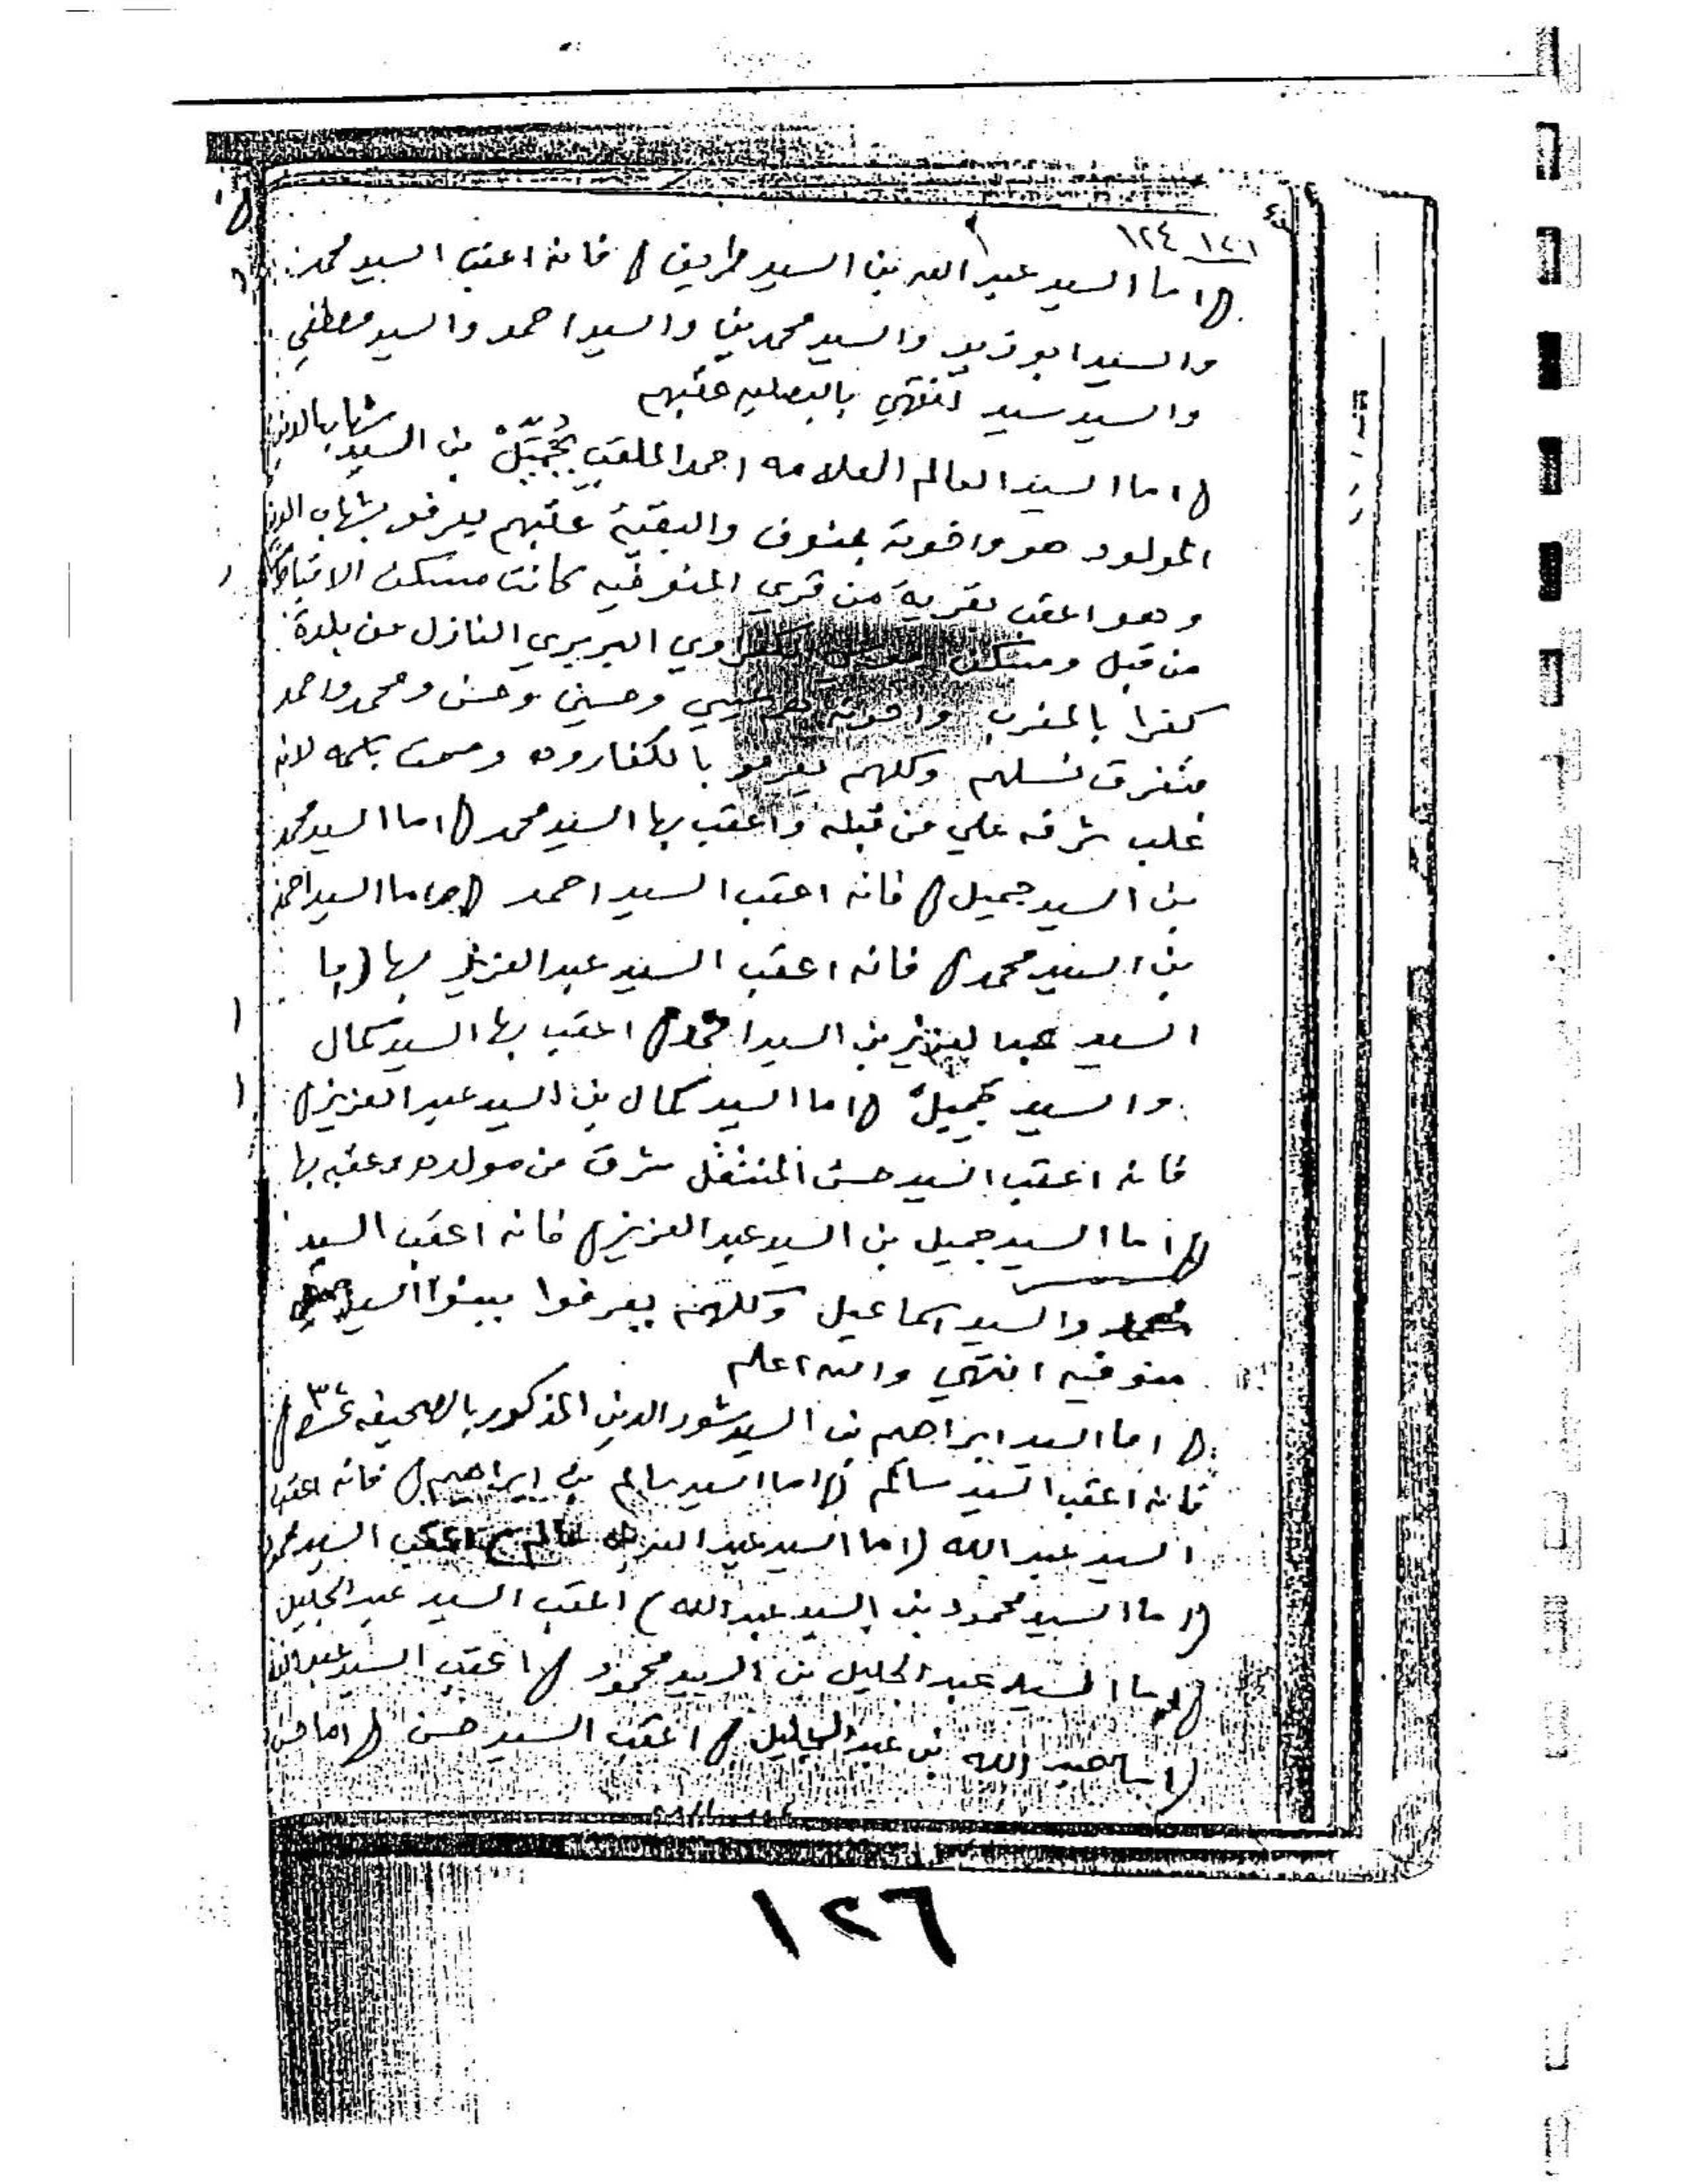 ١٢١ ١٢٤
اما السيد عبد الله بن السيد طريف فانه اعقب السيد محمد
والسيد ابو زيد والسيد محمدين والسيد احمد والسيد مصطفي
والسيد سيد انتهي بالبصليه عقبهم
اما السيد العالم العلامه احمد الملقب بجميل بن السيد شهاب الدين
المولود هو واخوته بمنوف والبقية عقبهم يعرفو بشهاب الدين
وهو اعقب بقرية من قري المنوفيه كانت مسكن الاقباط
من قبل ومسكن البربري النازل من بلدة
كفرا بالمغرب واخوته هم عيسي وحسين وحسن ومحمد واحمد
متفرق نسلهم وكلهم يعرفو بالكفاروه وسمت بكمه لانه
غلب شرفه علي من قبله واعقب بها السيد محمد اما السيد محمد
بن السيد جميل فانه اعقب السيد احمد اما السيد احمد
بن السيد محمد فانه اعقب السيد عبد العزيز بها اما
السيد عبد العزيز بن السيد احمد اعقب بها السيد كمال
والسيد جميل اما السيد كمال بن السيد عبد العزيز
فانه اعقب السيد حسن المنتقل شرق من مولده وعقبه بها
اما السيد جميل بن السيد عبد العزيز فانه اعقب السيد
محمد والسيد اسماعيل وكلهم يعرفوا ببنوا السيد
منوفيه انتهي والله اعلم
اما السيد ابراهيم بن السيد شور الدين المذكور بالصحيفه
فانه اعقب السيد سالم اما السيد سالم بن ابراهيم فانه اعقب
السيد عبد الله اما السيد عبد الله بن سالم اعقب السيد محمود
اما السيد محمود بن السيد عبد الله اعقب السيد عبد الجليل
اما السيد عبد الجليل بن السيد محمود اعقب السيد عبد الله
اما عبد الله بن عبد الجليل اعقب السيد حسن اما حسن
١٢٦